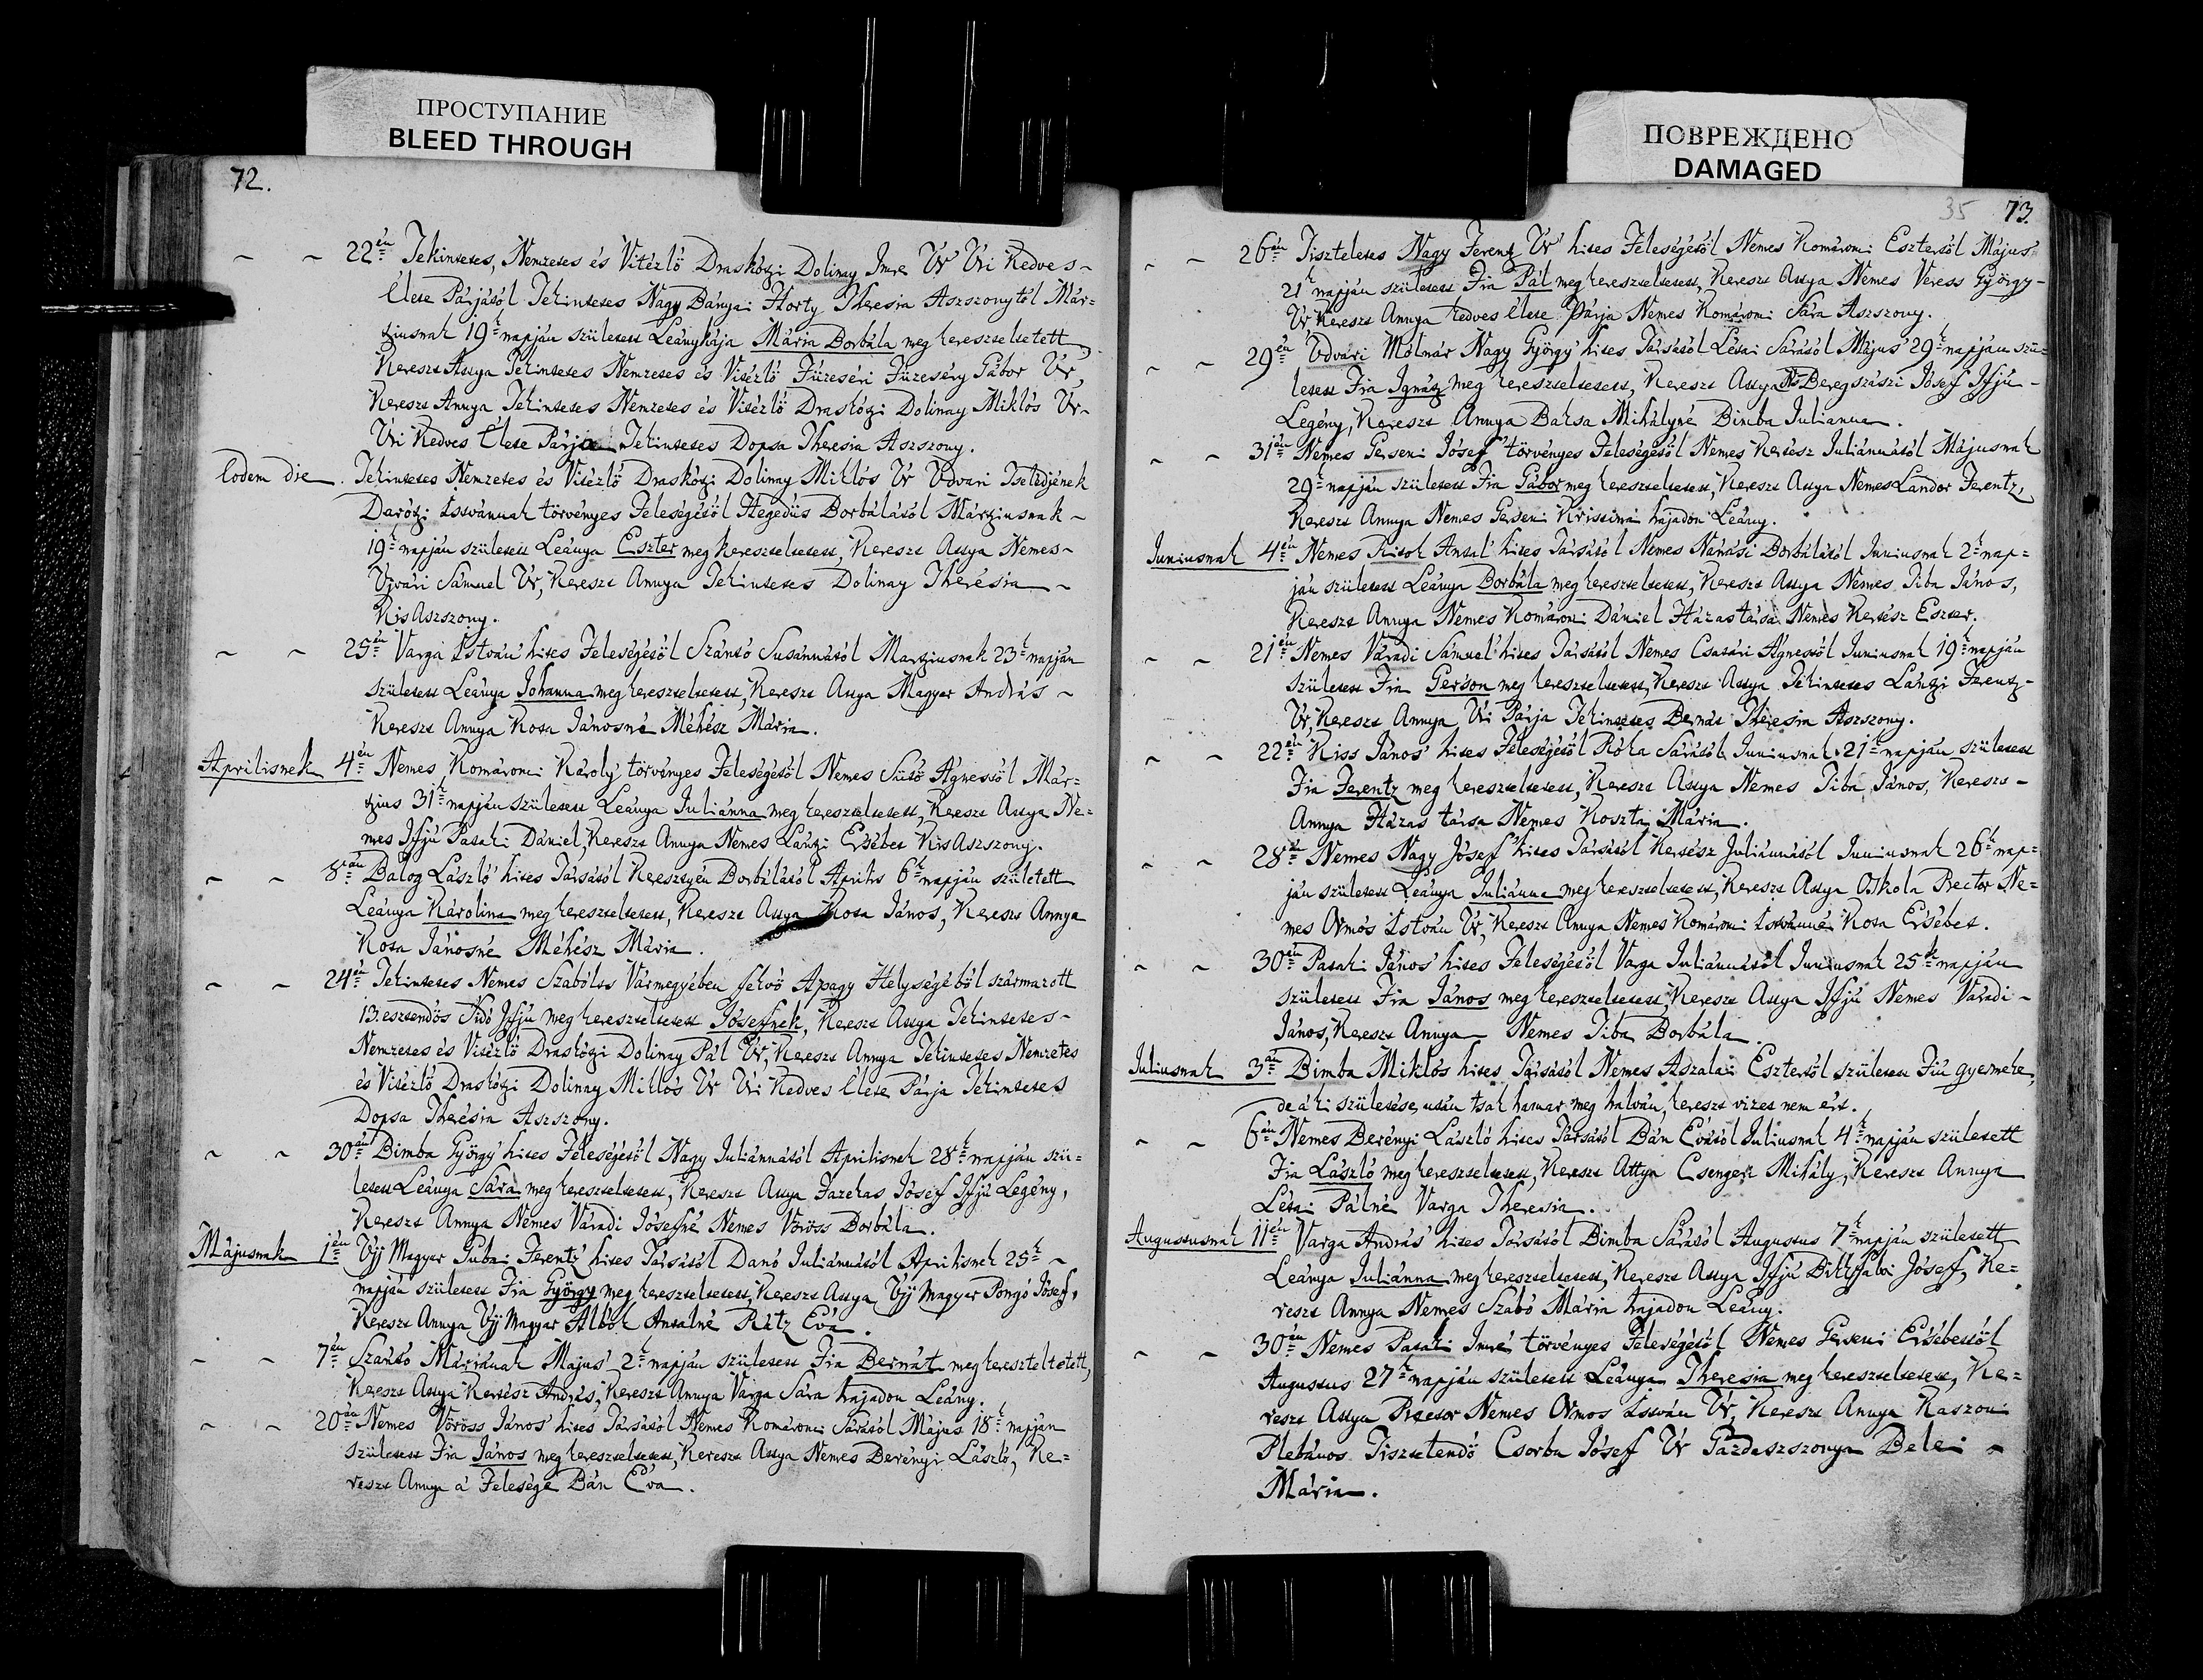 ПРОСТУПАНИЕ
BLEED THROUGH
72.
22én Tekintetes, Nemzetes és Vitézlő Draskótzi Dolinay Imre Úr Úri Kedves
Élete Párjától Tekintetes Nagy Bányai Horty Theresia Aszszonytól Már=
tziusnak 19k napján született Leánykája Mária Borbála meg kereszteltetett,
Kereszt Attya Tekintetes Nemzetes és Vitézlő Füzeséri Füzeséry Gábor Úr,
Kereszt Annya Tekintetes Nemzetes és Vitézlő Draskótzi Dolinay Miklós Úr
Úri Kedves Élete Párja Tekintetes Dopsa Theresia Aszszony.
Eodem die. Tekintetes Nemzetes és Vitézlő Draskótzi Dolinay Miklós Úr Udvari Tselédjének
Darótzi Istvánnak törvényes Feleségétől Hegedüs Borbálától Mártziusnak
19k napján született Leánya Eszter meg kereszteltetett, Kereszt Attya Nemes
Ujvári Sámuel Úr, Kereszt Annya Tekintetes Dolinay Therésia
Kis Aszszony.
25én Varga István hites Feleségétől Szántó Susánnától Martziusnak 23k napján
született Leánya Johanna meg kereszteltetett, Kereszt Attya Magyar András
Kereszt Annya Kota Jánosné Méhész Mária.
Aprilisnek 4én Nemes Komáromi Károly törvényes Feleségétől Nemes Sütő Ágnestől Már=
tzius 31k napján született Leánya Juliánna meg kereszteltetett, Kereszt Attya Ne=
mes Ifjú Pataki Dániel, Kereszt Annya Nemes Lántzi Ersébet Kis Aszszony.
8án Balog László hites Társától Keresztyén Borbálától Aprilis 6k napján született
Leánya Károlina meg kereszteltetett, Kereszt Attya Kota János, Kereszt Annya
Kota Jánosné Méhész Mária.
24én Tekintetes Nemes Szabólts Vármegyében fekvő Apagy Helységéből származott
13. esztendős Sidó Ifjú meg kereszteltetett Jósefnek, Kereszt Attya Tekintetes
Nemzetes és Vitézlő Draskótzi Dolinay Pál Úr, Kereszt Annya Tekintetes Nemzetes
és Vitézlő Draskótzi Dolinay Miklós Úr Úri Kedves Élete Párja Tekintetes
Dopsa Therésia Aszszony.
30án Bimba György hites Feleségétől Nagy Juliánnától Aprilisnek 28k napján szü=
letett Leánya Sára meg kereszteltetett, Kereszt Attya Fazekas Jósef Ifjú Legény,
Kereszt Annya Nemes Váradi Jósefné Nemes Vöröss Borbála.
Májusnak 1én Ujj Magyar Gubai Ferentz hites Társától Danó Juliánnától Aprilisnek 25k
napján született Fia György meg kereszteltetett, Kereszt Attya Ujj Magyar Pongó Jósef,
Kereszt Annya Ujj Magyar Albók Antalné Rátz Éva.
7én Szántó Máriának Majus 2k napján született Fia Bernát meg kereszteltetett,
Kereszt Attya Kertész András, Kereszt Annya Varga Sára hajadon Leány.
20án Nemes Vöröss János hites Társától Nemes Komáromi Sárától Május 18k napján
született Fia János meg kereszteltetett, Kereszt Attya Nemes Berényi László, Ke=
reszt Annya a' Felesége Bán Éva.
ПОВРЕЖДЕНО
DAMAGED
35 73.
26án Tiszteletes Nagy Ferentz Úr hites Feleségétől Nemes Komáromi Esztertől Május
21k napján született Fia Pál meg kereszteltetett, Kereszt Attya Nemes Veress György
Úr, Kereszt Annya kedves Élete Párja Nemes Komáromi Sára Aszszony.
29én Udvari Molnár Nagy György hites Társától Létai Sárától Május 29k napján szü=
letett Fia Ignátz meg kereszteltetett, Kereszt Attya Ns Beregszászi Jósef Ifjú
Legény, Kereszt Annya Baksa Mihályné Bimba Julianna.
31én Nemes Gerseni Jósef törvényes Feleségétől Nemes Kertész Juliánnától Májusnak
29k napján született Fia Gábor meg kereszteltetett, Kereszt Attya Nemes Landor Ferentz,
Kereszt Annya Nemes Gerseni Kristina hajadon Leány.
Juniusnak 4én Nemes Ritok Antal hites Társától Nemes Nánási Borbálától Juniusnak 2k nap=
ján született Leánya Borbála meg kereszteltetett, Kereszt Attya Nemes Tiba János,
Kereszt Annya Nemes Komáromi Dániel Házas társa Nemes Kertész Eszter.
21én Nemes Váradi Sámuel hites Társától Nemes Csatári Ágnestől Juniusnak 19k napján
született Fia Gerson meg kereszteltetett, Kereszt Attya Tekintetes Lántzi Ferentz
Úr, Kereszt Annya Úri Párja Tekintetes Bernát Theresia Aszszony.
22én Kiss János hites Feleségétől Róka Sárától Juniusnak 21k napján született
Fia Ferentz meg kereszteltetett, Kereszt Attya Nemes Tiba János, Kereszt
Annya Házas társa Nemes Koszta Mária.
28án Nemes Nagy Jósef hites Társától Kertész Juliánnától Juniusnak 26k nap=
ján született Leánya Juliánna meg kereszteltetett, Kereszt Attya Oskola Rector Ne=
mes Ormós István Úr, Kereszt Annya Nemes Komáromi Istvánné Kota Ersébet.
30án Pataki János hites Feleségétől Varga Juliánnától Juniusnak 25k napján
született Fia János meg kereszteltetett, Kereszt Attya Ifjú Nemes Váradi
János, Kereszt Annya Nemes Tiba Borbála.
Juliusnak 3án Bimba Miklós hites Társától Nemes Aszalai Esztertől született Fiú gyermeke,
de a' ki születése után tsak hamar meg halván, kereszt vizet nem ért.
6án Nemes Berényi László hites Társától Bán Évától Juliusnak 4k napján született
Fia László meg kereszteltetett, Kereszt Attya Csengeri Mihály, Kereszt Annya
Létai Pálné Varga Theresia.
Augustusnak 11én Varga András hites Társától Bimba Sárától Augustus 7k napján született
Leánya Juliánna meg kereszteltetett, Kereszt Attya Ifjú Jósef, Ke=
reszt Annya Nemes Szabó Mária hajadon Leány.
30án Nemes Pataki Imre törvényes Feleségétől Nemes Gerseni Ersébettől
Augustus 27k napján született Leánya Theresia meg kereszteltetett, Ke=
reszt Attya Nemes Ormos István Úr, Kereszt Annya Kaszoni
Plebános Tisztelendő Csorba Jósef Úr Gazdaszszonya Belei
Mária.